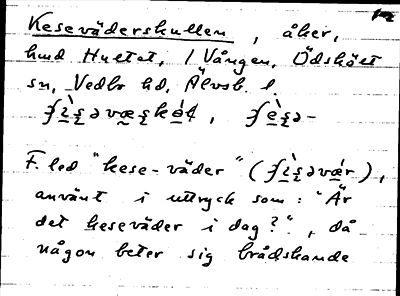 Keseväderskullen, åker,
hmd Hultet, / Vången, Ödskölt
sn, Vedbo hd, Älvsb. l.
F. led "kese-väder"
använt i uttryck som: "Är
det keseväder i dag?", då
någon beter sig brådskande